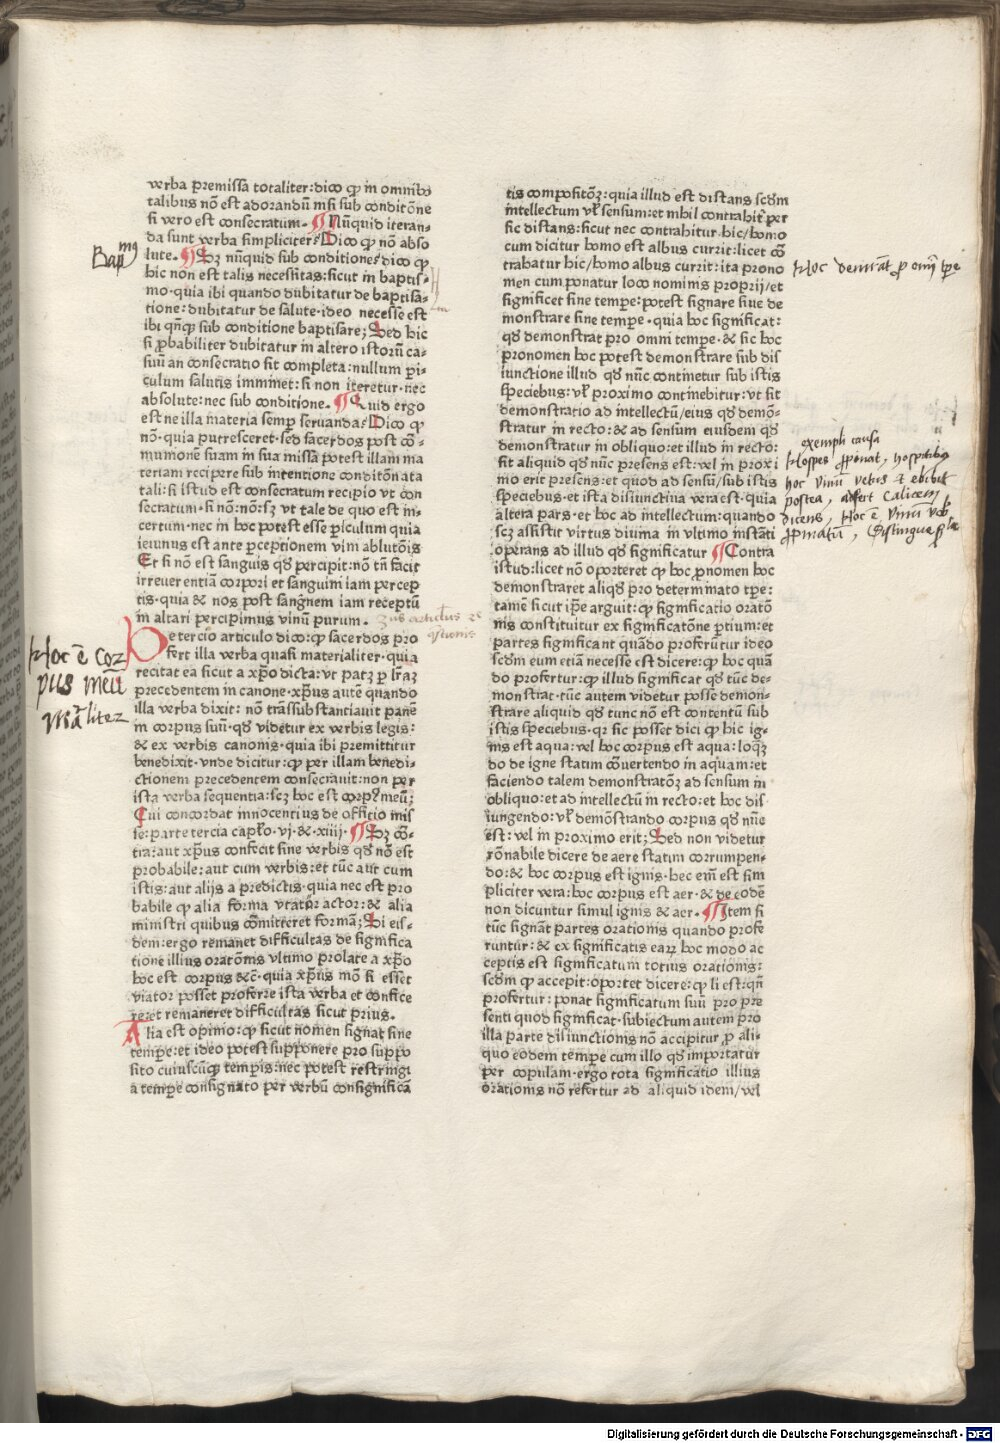 verba p̄missa totaliter: dico ꝙ in omnibꝰ
talibus nō est adorandū nisi sub conditōne
si vero est consecratum. ¶ Nūquid iteran-
da sunt verba simpliciter? Dico ꝙ nō abso
lute. ¶ Sꝫ nūquid sub conditione? dico ꝙ
hic non est talis necessitas: sicut in baptis-
mo. quia ibi quando dubitatur de baptisa-
tione: dubitatur de salute. ideo necesse est
ibi qn̄cꝙ sub conditione baptisare; Sed hic
si ꝓbabiliter dubitatur in altero istorū ca-
suū an consecratio sit completa: nullum pi-
culum salutis imminet: si non iteretur. nec
absolute: nec sub conditione. ¶ Quid ergo
est ne illa materia semꝑ seruanda? Dico ꝙ
nō. quia putresceret. sed sacerdos post cō-
munionē suam in sua missa potest illam ma
teriam recipere sub intentione conditōnata
tali: si istud est consecratum recipio vt con
secratum. si nō: nō: sꝫ vt tale de quo est in-
certum. nec in hoc potest esse ꝑiculum quia
ieiunus est ante ꝑceptionem vini ablutōis
Et si nō est sanguis qd̄ percipit: nō tn̄ facit
irreuerentiā corpori et sanguini iam percep
tis. quia & nos post sanḡnem iam receptū
in altari percipimus vinū purum.
De tercio articulo dico: ꝙ sacerdos pro
fert illa verba quasi materialiter. quia
recitat ea sicut a xp̄o dicta: vt patꝫ ꝑ lr̄aꝫ
precedentem in canone. xp̄us autē quando
illa verba dixit: nō trāssubstantiauit panē
in corpus suū. qd̄ videtur ex verbis legis:
& ex verbis canonis. quia ibi premittitur
benedixit. vnde dicitur: ꝙ per illam benedi-
ctionem precedentem consecrauit: non per
ista verba sequentia: scꝫ hoc est corpꝰ meū;
Cui concordat innocentius de officio mis
se: parte tercia capl̄o. vj. & .xiiij. ¶ Sꝫ cō-
tra: aut xp̄us confecit sine verbis qd̄ nō est
probabile: aut cum verbis: et tūc aut cum
istis: aut alijs a predictis. quia nec est pro
babile ꝙ alia forma vtatur actor: & alia
ministri quibus cōmitteret formā; Si eis-
dem: ergo remanet difficultas de significa
tione illius oratōnis vltimo prolate a xp̄o
hoc est corpus &c̄. quia xp̄us mō si esset
viator posset proferre ista verba et confice
re: et remaneret difficultas sicut prius.
Alia est opinio: ꝙ sicut nomen signat sine
tempe: et ideo potest supponere pro suppo
sito cuiuscūꝙ tempis: nec potest restringi
a tempe consignato per verbū consignificā
tis compositōꝫ: quia illud est distans scd̄m
intellectum vl̓ sensum: et nihil contrahit̄ per
sic distans: sicut nec contrahitur hic / homo
cum dicitur homo est albus currit: licet cō
trahatur hic / homo albus currit: ita prono
men cum ponatur loco nominis proprij / et
significet sine tempe: potest signare siue de
monstrare sine tempe. quia hoc significat:
qd̄ demonstrat pro omni tempe. & sic hoc
pronomen hoc potest demonstrare sub dis
iunctione illud qd̄ nūc continetur sub istis
speciebus: vl̓ proximo continebitur: vt sit
demonstratio ad intellectū / eius qd̄ demō-
stratur in recto: & ad sensum eiusdem qd̄
demonstratur in obliquo: et illud in recto:
sit aliquid qd̄ nūc presens est: vel in proxi
mo erit presens: et quod ad sensū / sub istis
speciebus. et ista disiunctiua vera est. quia
altera pars. et hoc ad intellectum: quando
scꝫ assistit virtus diuina in vltimo instāti
operans ad illud qd̄ significatur ¶ Contra
istud: licet nō oporteret ꝙ hoc p̄nomen hoc
demonstraret aliqd̄ pro determinato tp̄e:
tamē sicut ip̄e arguit: ꝙ significatio oratō
nis constituitur ex significatōne partium: et
partes significant quādo proferūtur ideo
scd̄m eum etiā necesse est dicere: ꝙ hoc quā
do profertur: ꝙ illud significat qd̄ tūc de-
monstrat. tūc autem videtur posse demon-
strare aliquid qd̄ tunc nō est contentū sub
istis speciebus. qr sic posset dici ꝙ hic ig-
nis est aqua: vel hoc corpus est aqua: loq̄ꝫ
do de igne statim cōuertendo in aquam: et
faciendo talem demonstratōꝫ ad sensum in
obliquo: et ad intellectū in recto: et hoc dis
iungendo: vl̓ demōstrando corpus qd̄ nūc
est: vel in proximo erit; Sed non videtur
rōnabile dicere de aere statim corrumpen-
do: & hoc corpus est ignis. hec em̄ est sim
pliciter vera: hoc corpus est aer. & de eodē
non dicuntur simul ignis & aer. ¶ Item si
tūc signāt partes orationis quando profe
runtur: & ex significatis earꝝ hoc modo ac
ceptis est significatum totius orationis:
scd̄m ꝙ accepit: oportet dicere: ꝙ li est: qn̄
profertur: ponat significatum suū pro pre
senti quod significat. subiectum autem pro
illa parte disiunctionis nō accipitur p̄ ali-
quo eodem tempe cum illo qd̄ importatur
per copulam. ergo tota significatio illius
orationis nō refertur ad aliquid idem / vel
Bapmꝰ
Hoc ē cor
pus meū
mālitez
3us articulus
Hoc demr̄at p̄ omi tp̄e
exempli causa
Hospes ꝓpinat, hospitibꝰ
hoc vinū vetus & ebibit
postea, affert Calicem
dicens, Hoc ē vinū
ꝓpinatū, Distingue
Digitalisierung gefördert durch die Deutsche Forschungsgemeinschaft - DFG